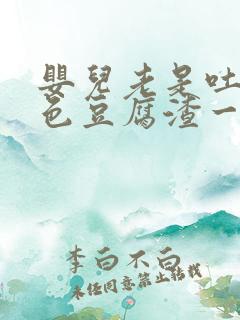 嬰兒老是吐
色豆腐渣一
李白不白
未经同意禁止转载